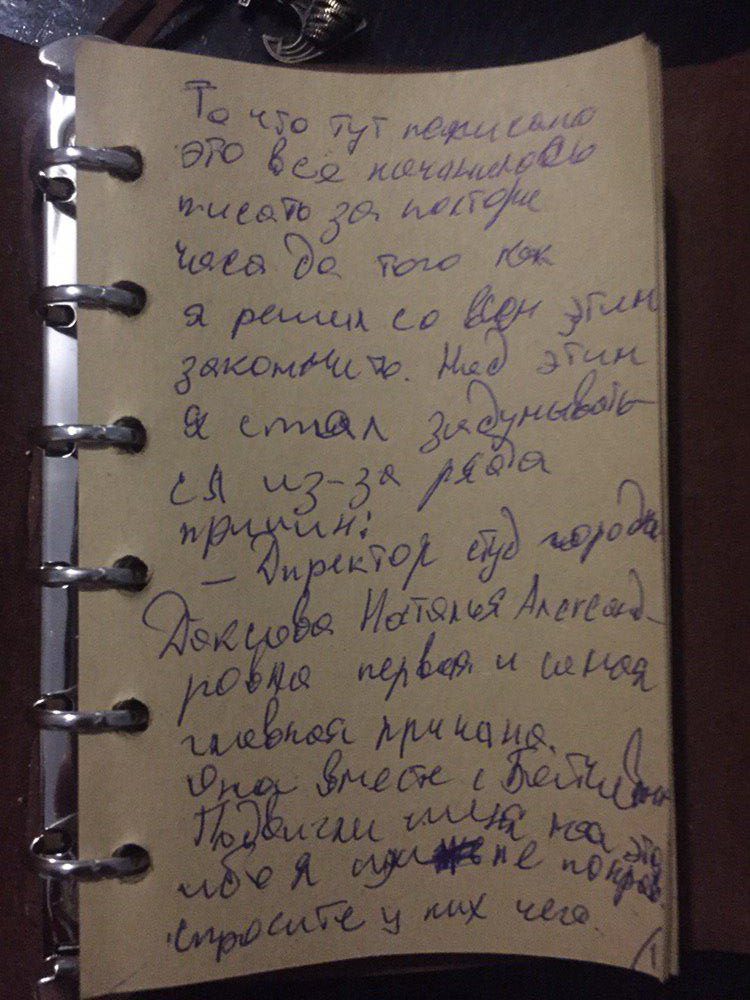 То что тут написано
это всё начиналось
писать за полтора
часа да того как
я решил со всем этим
закончить. Над этим
я стал задумывать-
ся из-за ряда
причин:
– Директор студ городка
Наталья Александ-
ровна первая и самая
главная причина.
Она вместе с
Подвигли меня на это
ибо я им не понрав.
спросите у них чего.
1